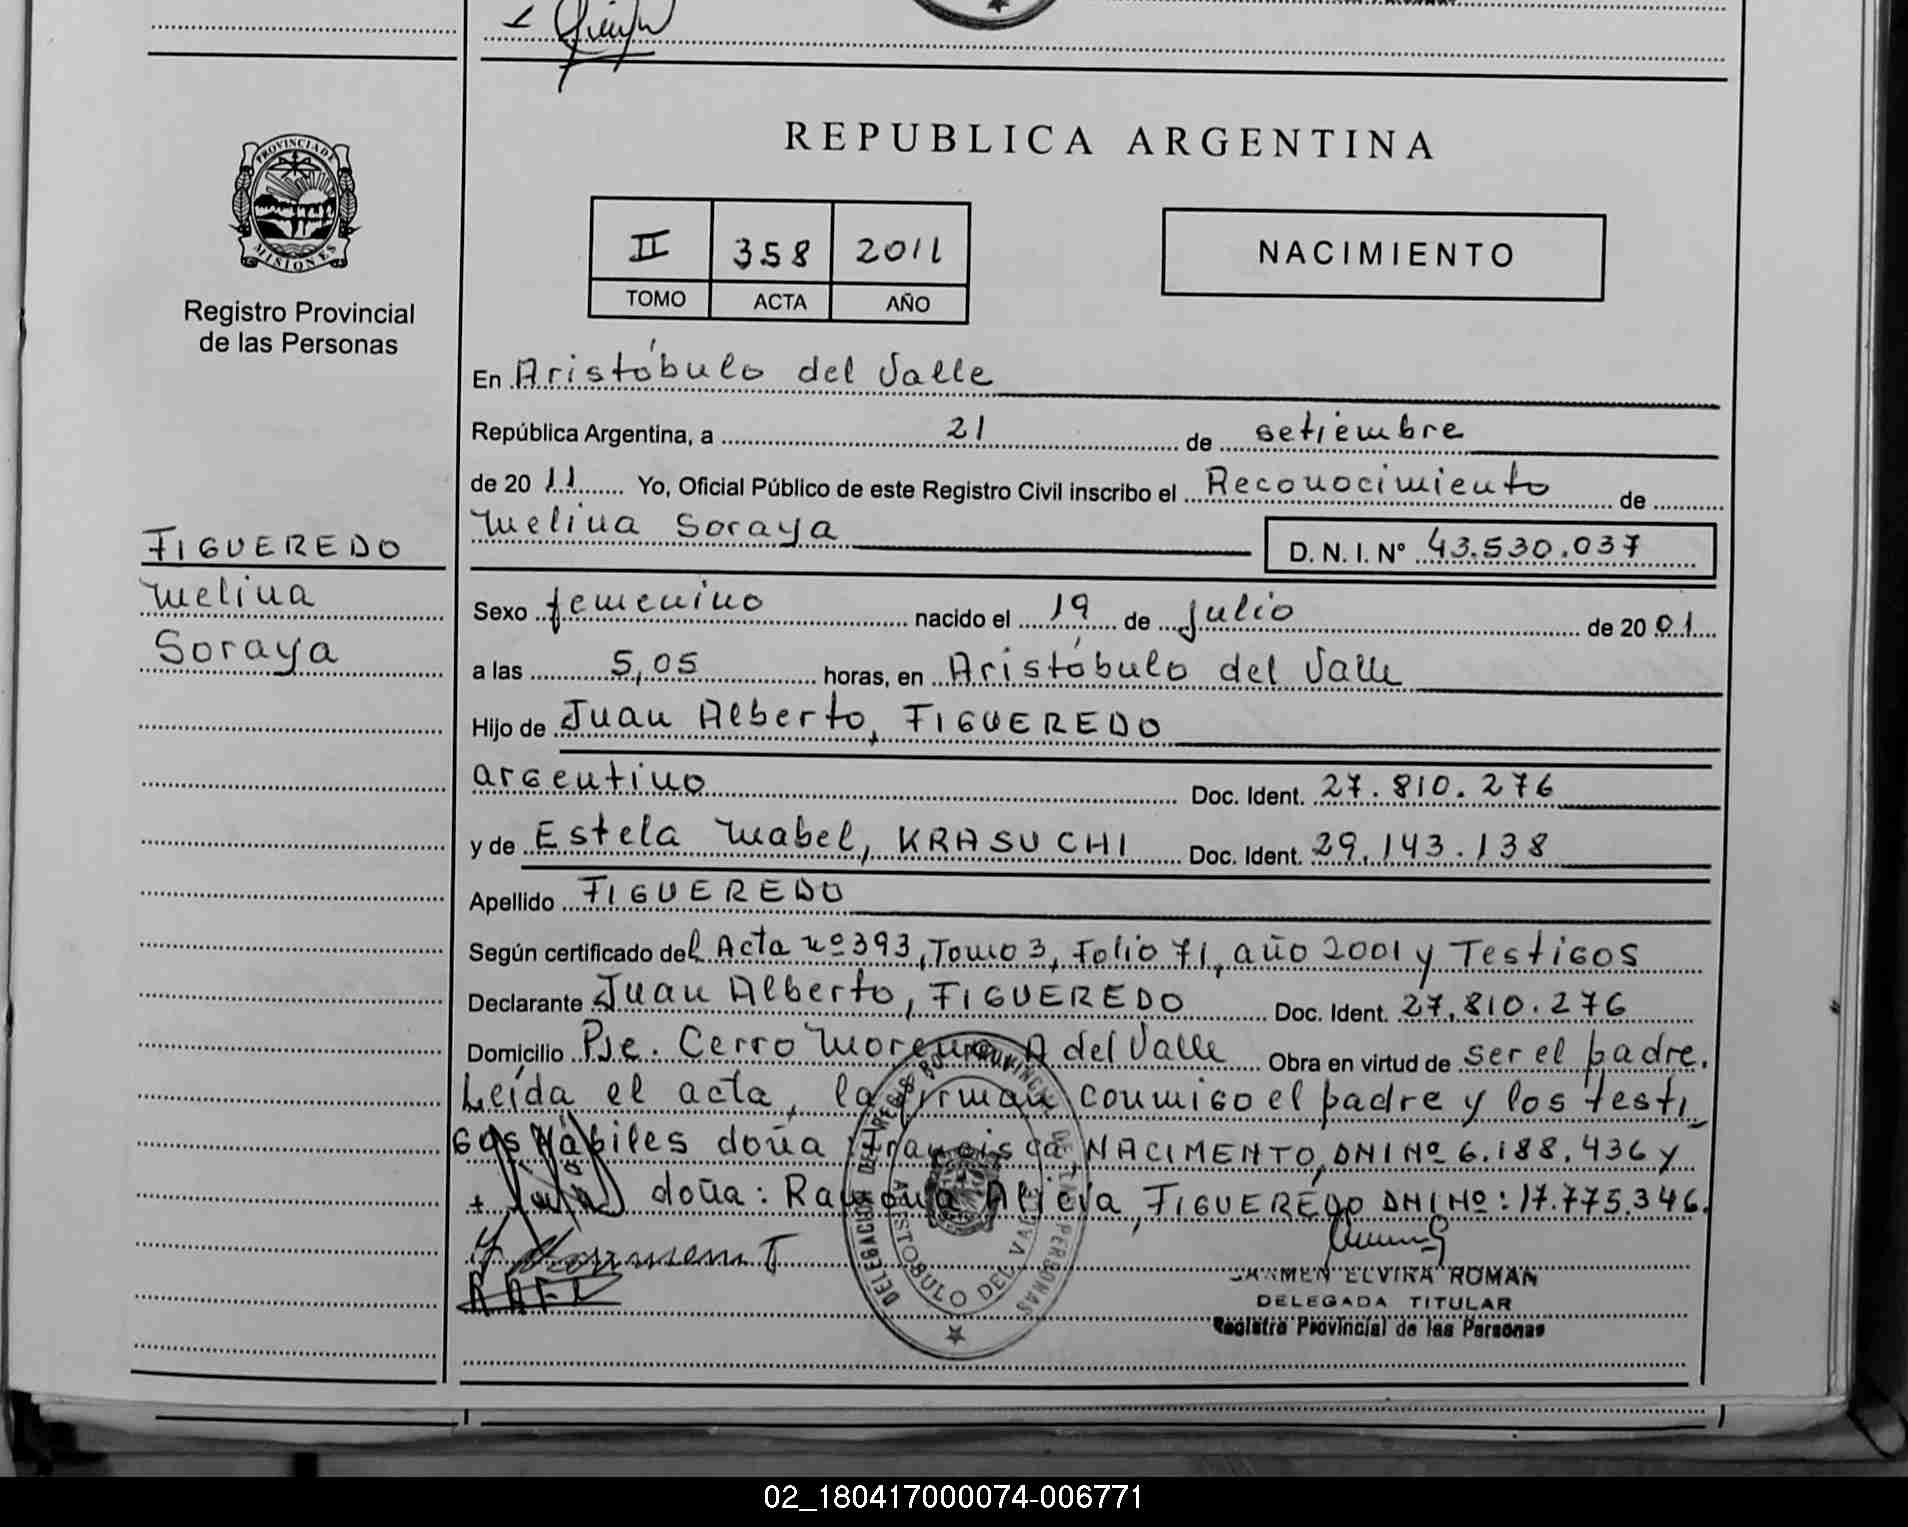 REPUBLICA ARGENTINA
PROVINCIA DE
MISIONES
Registro Provincial
de las Personas
II 358 2011
TOMO ACTA AÑO
NACIMIENTO
En Aristóbulo del Valle
República Argentina, a 21 de setiembre
de 2011 Yo, Oficial Público de este Registro Civil inscribo el Reconocimiento de
Melina Soraya D. N. I. Nº 43.530.037
FIGUEREDO
Melina
Soraya
Sexo femenino nacido el 19 de Julio de 2001
a las 5,05 horas, en Aristóbulo del Valle
Hijo de Juan Alberto, FIGUEREDO
argentino Doc. Ident. 27.810.276
y de Estela Mabel, KRASUCHI Doc. Ident. 29.143.138
Apellido FIGUEREDO
Según certificado del Acta nº 393, Tomo 3, Folio 71, año 2001 y Testigos
Declarante Juan Alberto, FIGUEREDO Doc. Ident. 27.810.276
Domicilio Pje. Cerro Moreno A del Valle Obra en virtud de ser el padre.
Leída el acta, la firman conmigo el padre y los testi
gos hábiles doña: Francisca, NACIMENTO, DNI Nº 6.188.436 y
doña: Ramona, FIGUEREDO DNI Nº: 17.775.346.
CARMEN ELVIRA ROMAN
DELEGADA TITULAR
Registro Provincial de las Personas
DELEGACION DEL REGISTRO PROVINCIAL DE LAS PERSONAS
ARISTOBULO DEL VALLE
02_180417000074-006771